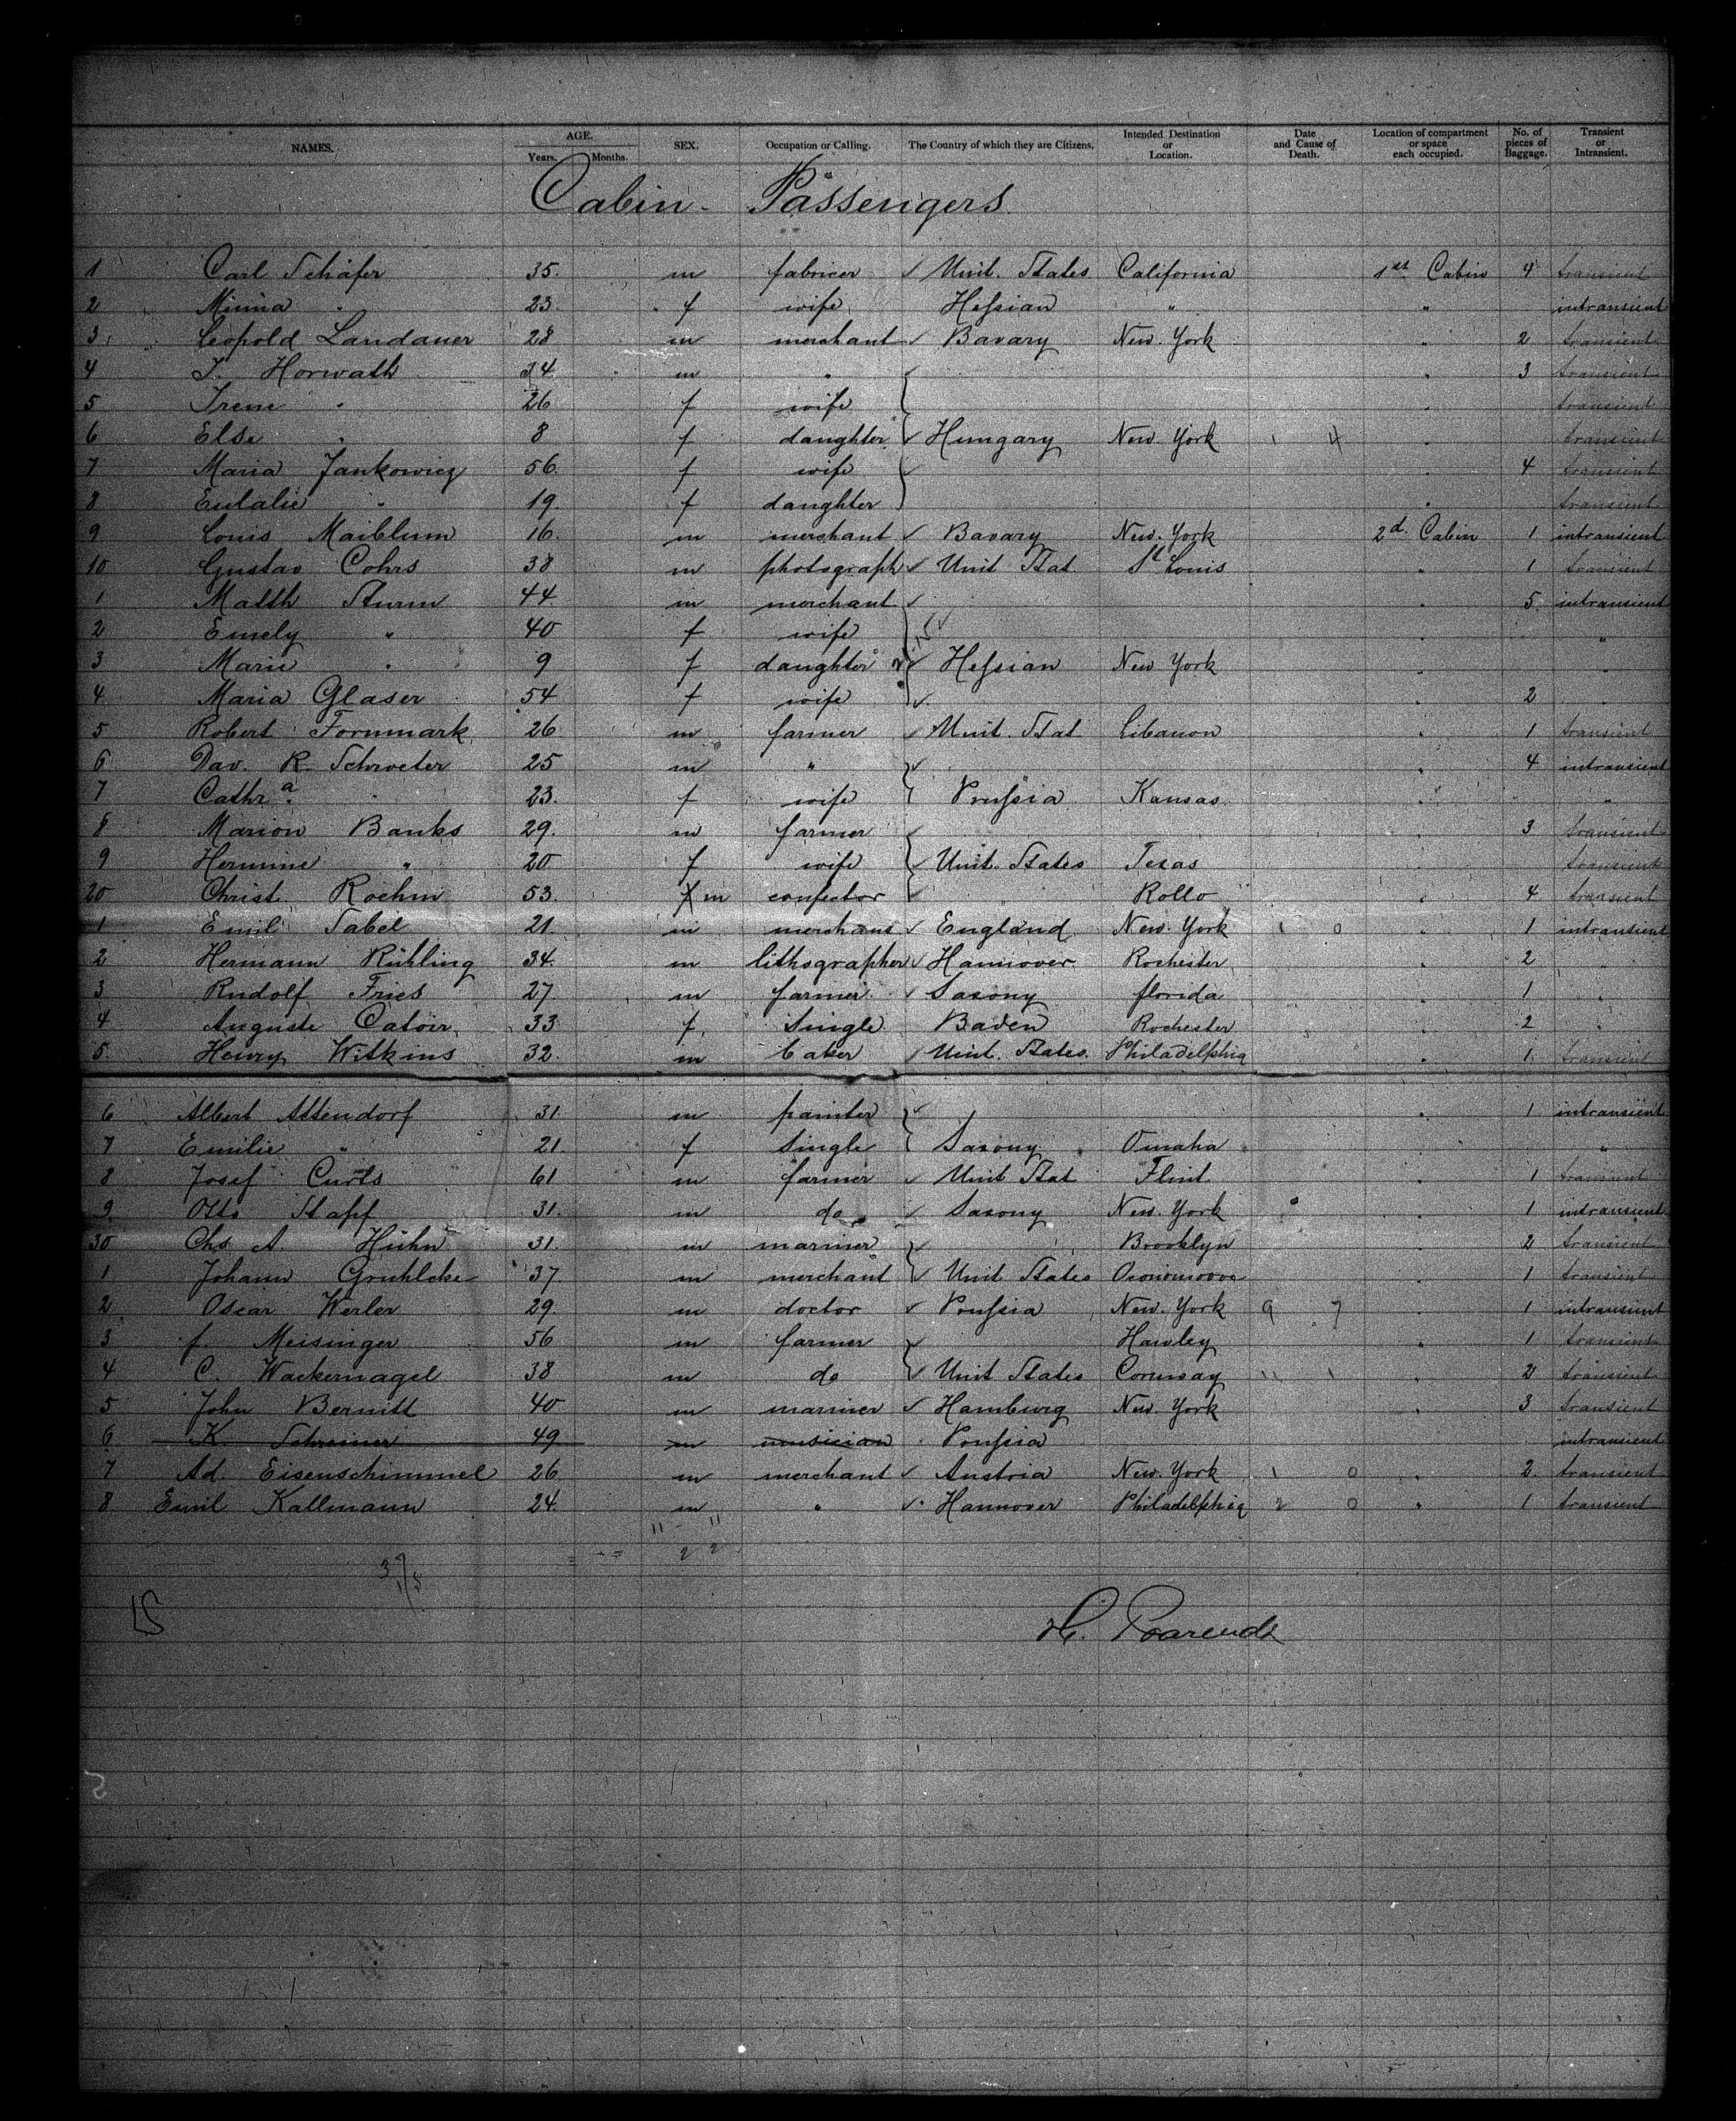 NAMES. AGE. Years. Months. SEX. Occupation or Calling. The Country of which they are Citizens. Intended Destination or Location. Date and Cause of Death. Location of compartment or space each occupied. No. of pieces of Baggage. Transient or Intransient.
Cabin - Passengers
1 Carl Schäfer 35. m fabricer Unit. States California 1st Cabin 4 transient
2 Minna " 23. f wife Hessian " " intransient
3 Leopold Landauer 28 m merchant Bavary New York " 2 transient
4 J. Horwath 34 m " " 3 transient
5 Irene " 26 f wife " transient
6 Else " 8 f daughter Hungary New York " transient
7 Maria Jankowicz 56. f wife " 4 transient
8 Eulalie " 19. f daughter " transient
9 Louis Maiblum 16. m merchant Bavary New York 2d. Cabin 1 intransient
10 Gustav Cohrs 38 m photograph Unit Stat St Louis " 1 transient
1 Matth Sturm 44. m merchant " 5. intransient
2 Emely " 40 f wife " "
3 Marie " 9 f daughter Hessian New York " "
4 Maria Glaser 54 f wife " 2 "
5 Robert Fornmark 26. m farmer Unit. Stat Libanon " 1 transient
6 Dav. R. Schroeter 25 m " " 4 intransient
7 Cathra. " 23. f wife Prussia Kansas. " "
8 Marion Banks 29. m farmer " 3 transient
9 Hermine " 20 f wife Unit. States Texas " transient
20 Christ. Roehm 53. m confector " Rollo " 4 transient
1 Emil Sabel 21. m merchant England New York " 1 intransient
2 Hermann Rühling 34. m lithographer Hannover. Rochester " 2 "
3 Rudolf Fries 27. m farmer Saxony florida " 1 "
4 Auguste Catoir 33 f. Single Baden Rochester " 2 "
5. Henry Witkins 32. m baker Unit. States. Philadelphia " 1. transient
6 Albert Attendorf 31. m painter " 1 intransient
7 Emilie " 21. f Single Saxony Omaha "
8 Josef Curts 61 m farmer Unit Stat Flint " 1 transient
9. Otto Stapf 31. m do Saxony New York " 1 intransient
30 Chs A. Hühn 31. m mariner Brooklyn " 2 transient
1 Johann Gruhlcke 37. m merchant Unit States " 1 transient
2 Oscar Werler 29. m doctor Prussia New York " 1 intransient
3 f. Meisinger 56 m farmer Hawley " 1 transient
4 C. Wackernagel 38 m do Unit States Cornway " 2 transient
5 John Bernitt 40 m mariner Hamburg New York " 3 transient
6 K. Schreiner 49 m musician Prussia intransient
7 Ad. Eisenschimmel 26. m merchant Austria New York " 2 transient
8 Emil Kallmann 24. m " Hannover Philadelphia " 1 transient
H. Baarends